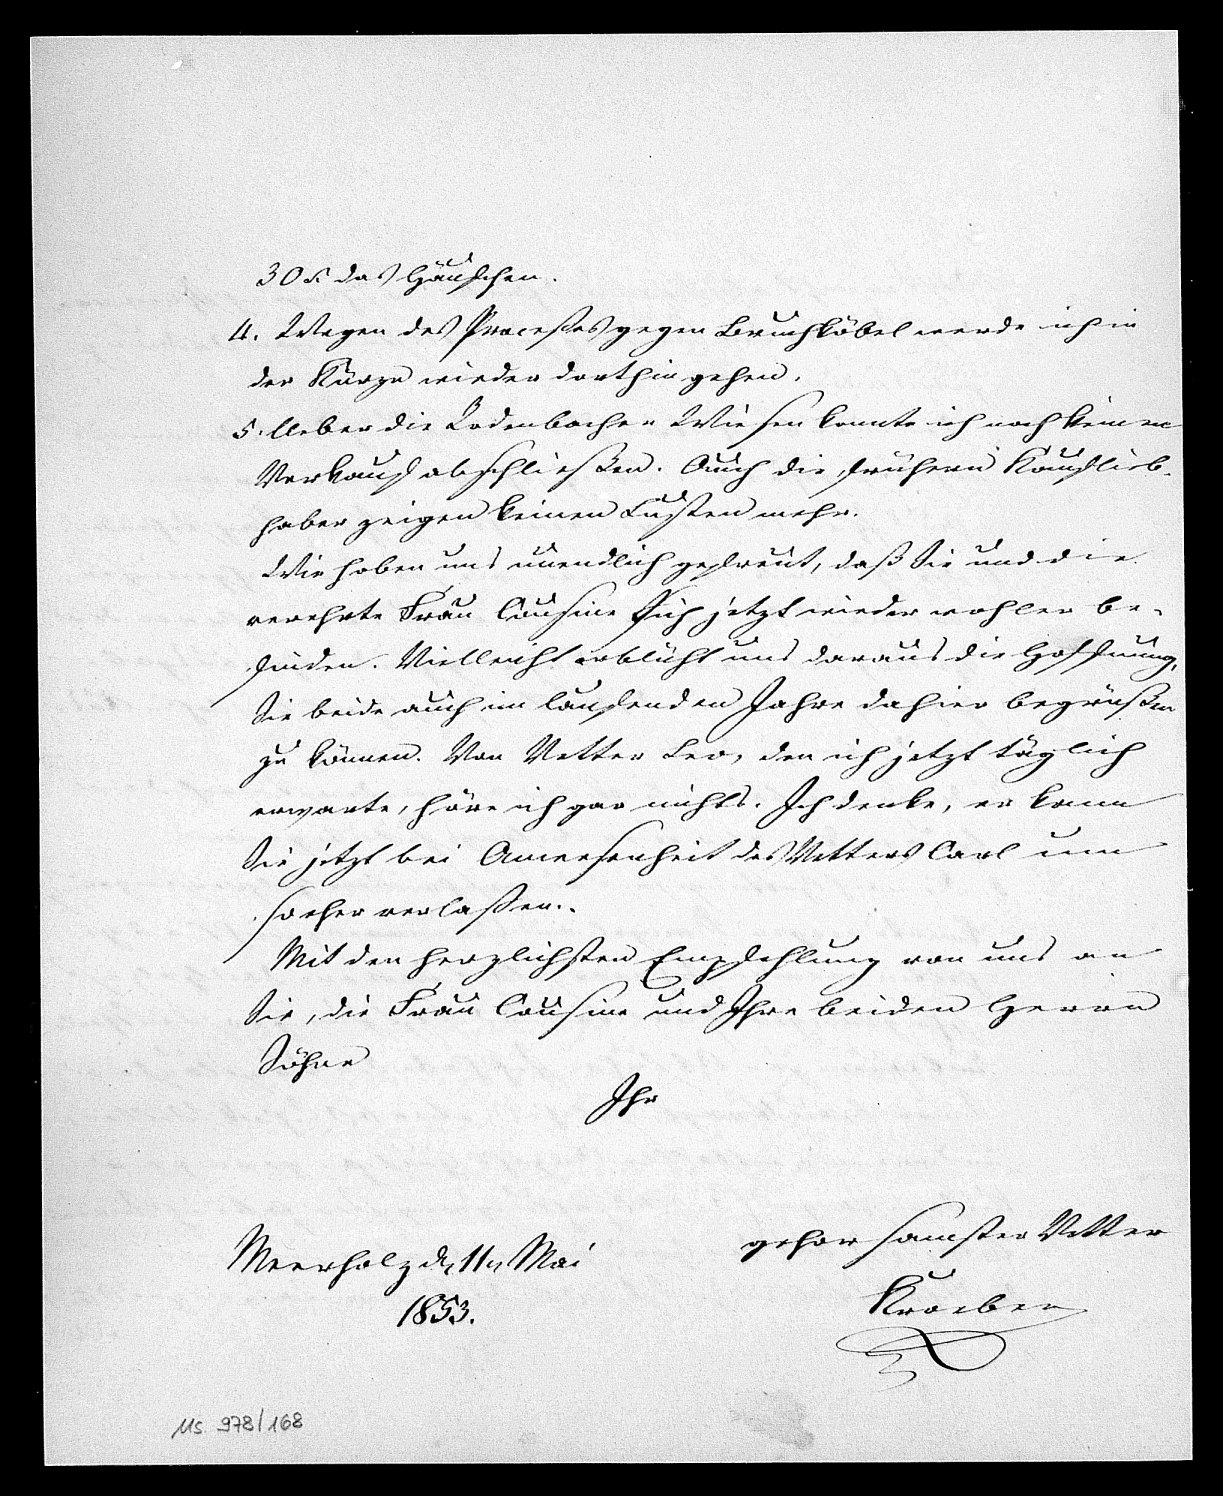 30 x das Häuschen.
4. Wegen des Processes gegen Bruchköbel werde ich in
der Kürze wieder dorthin gehen.
5. Ueber die Rodenbacher Wiesen konnte ich noch keinen
Verkauf abschließen. Auch die frühern Kauflieb-
haber zeigen keinen Lusten mehr.
Wir haben uns unendlich gefreut, daß Sie und die
verehrte Frau Cousine sich jetzt wieder wohler be-
finden. Vielleicht erblüht uns daraus die Hoffnung,
Sie beide auch im laufenden Jahre dahier begrüßen
zu können. Von Vetter Leo, den ich jetzt täglich
erwarte, höre ich gar nichts. Ich denke, er kann
Sie jetzt bei Anwesenheit des Vetters Carl um
so eher verlaßen.
Mit den herzlichsten Empfehlung von uns an
Sie, die Frau Cousine und Ihre beiden Herrn
Söhne
Ihr
gehorsamster Vetter
Kroeber
Meerholz d. 11n Mai
1853.
Ms. 978/168